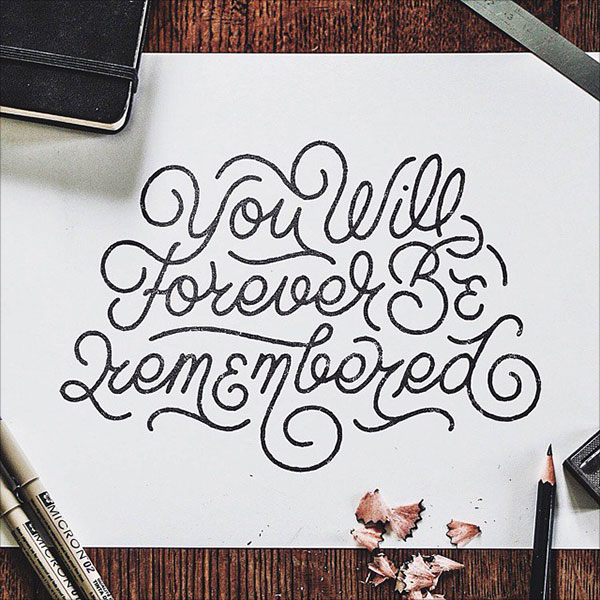 You Will
Forever Be
Remembered
MICRON 02